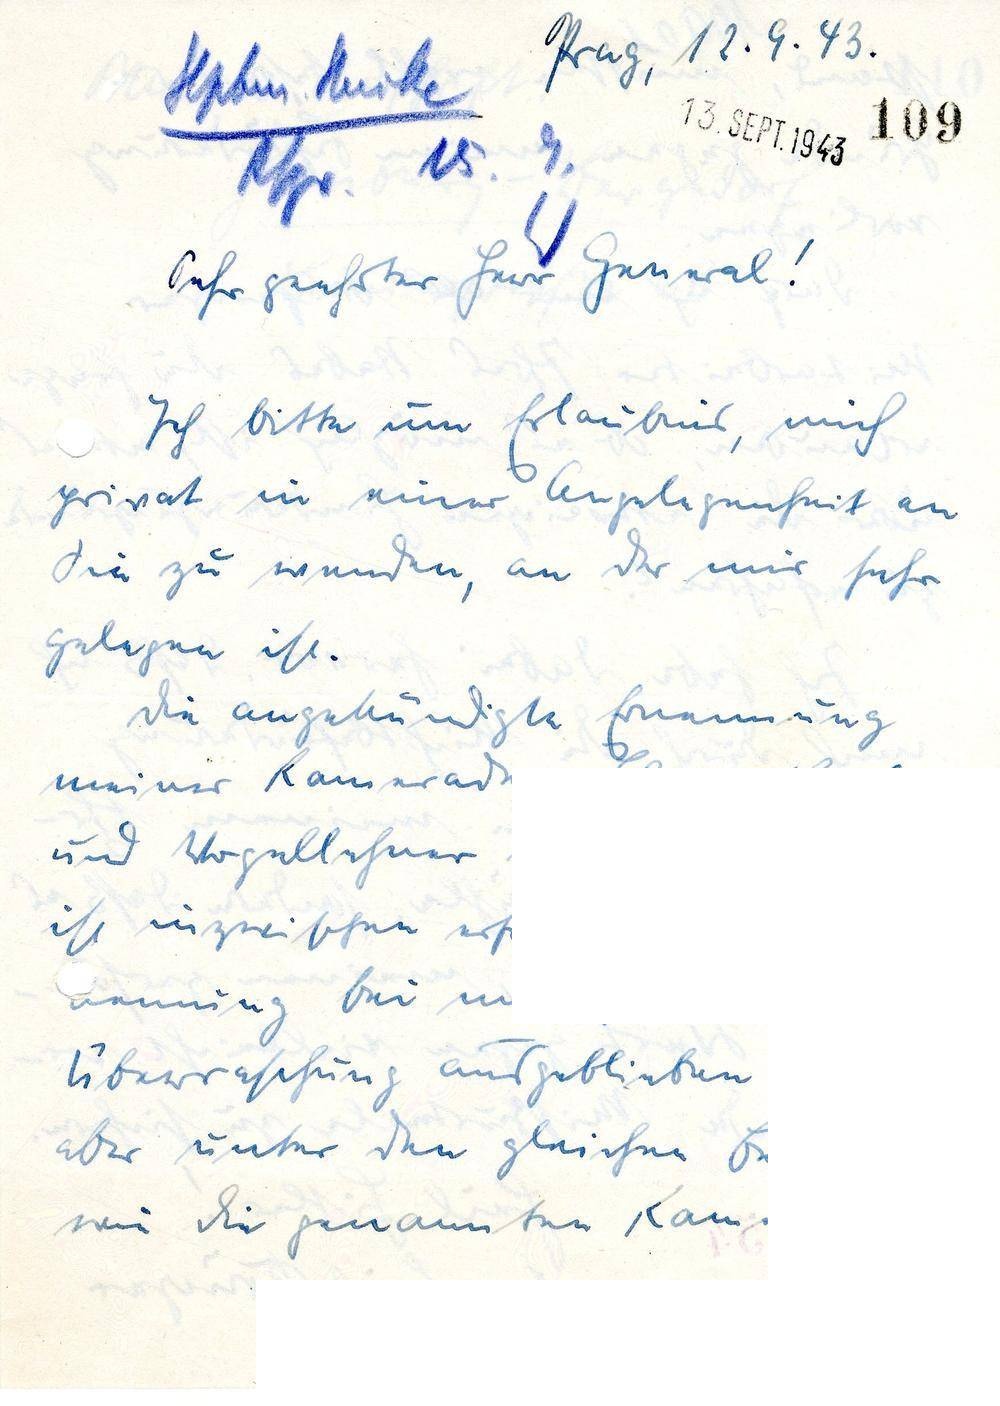 Prag, 12.9.43.
13. SEPT. 1943
109
15. 9.
Sehr geehrter Herr General!
Ich bitte um Erlaubnis, mich
privat in einer Angelegenheit an
Sie zu wenden, an der mir sehr
gelegen ist.
Die angekündigte Ernennung
meiner Kamerad
und Vogellehner
ist inzwischen erf
nennung bei m
Überraschung ausgeblieben
aber unter den gleichen Be
wie die genannten Kam